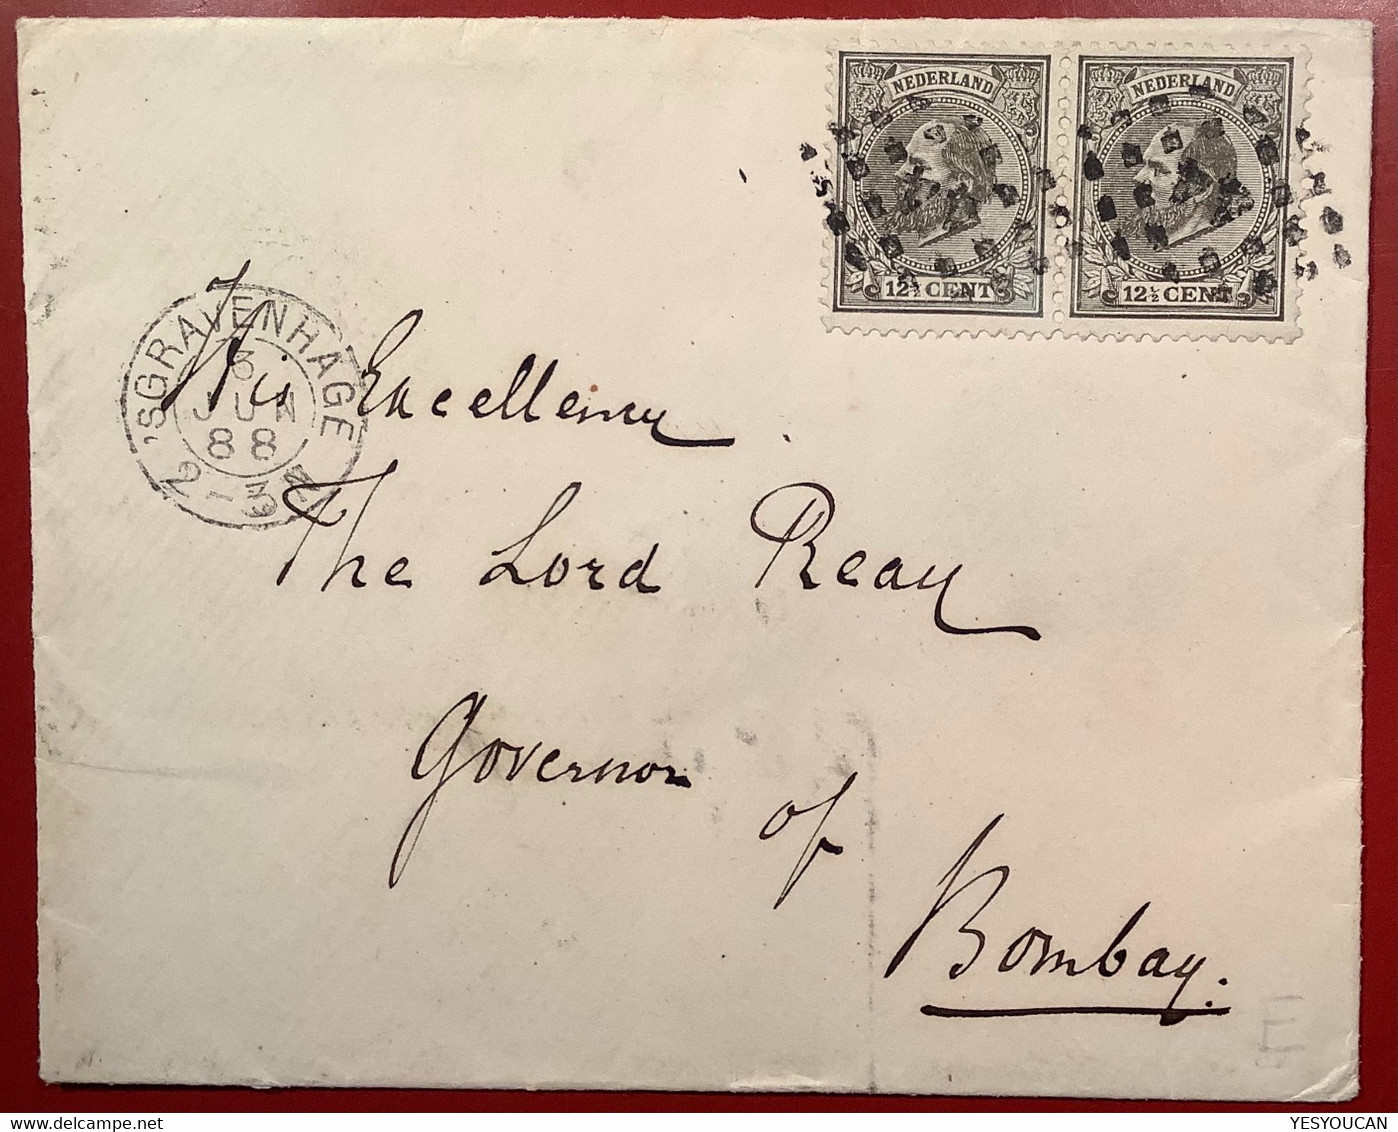 NEDERLAND
12½ CENT
NEDERLAND
12½ CENT
'SGRAVENHAGE
3
JUN
88
2-3N
His Excellency
The Lord Reay
Governor
of
Bombay.
E
YESYOUCAN